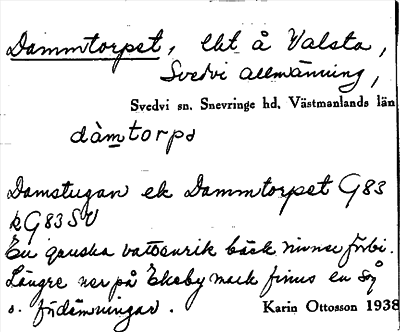 Dammtorpet, lht å Valsta,
Svedvi allmänning,
Svedvi sn. Snevringe hd, Västmanlands län
dàmtorps
Damstugan ek Dammtorpet G83
kG83SV
En ganska vattenrik bäck rinner förbi.
Längre ner på Ekeby mark finns en såg
o. fördämningar.
Karin Ottosson 1938